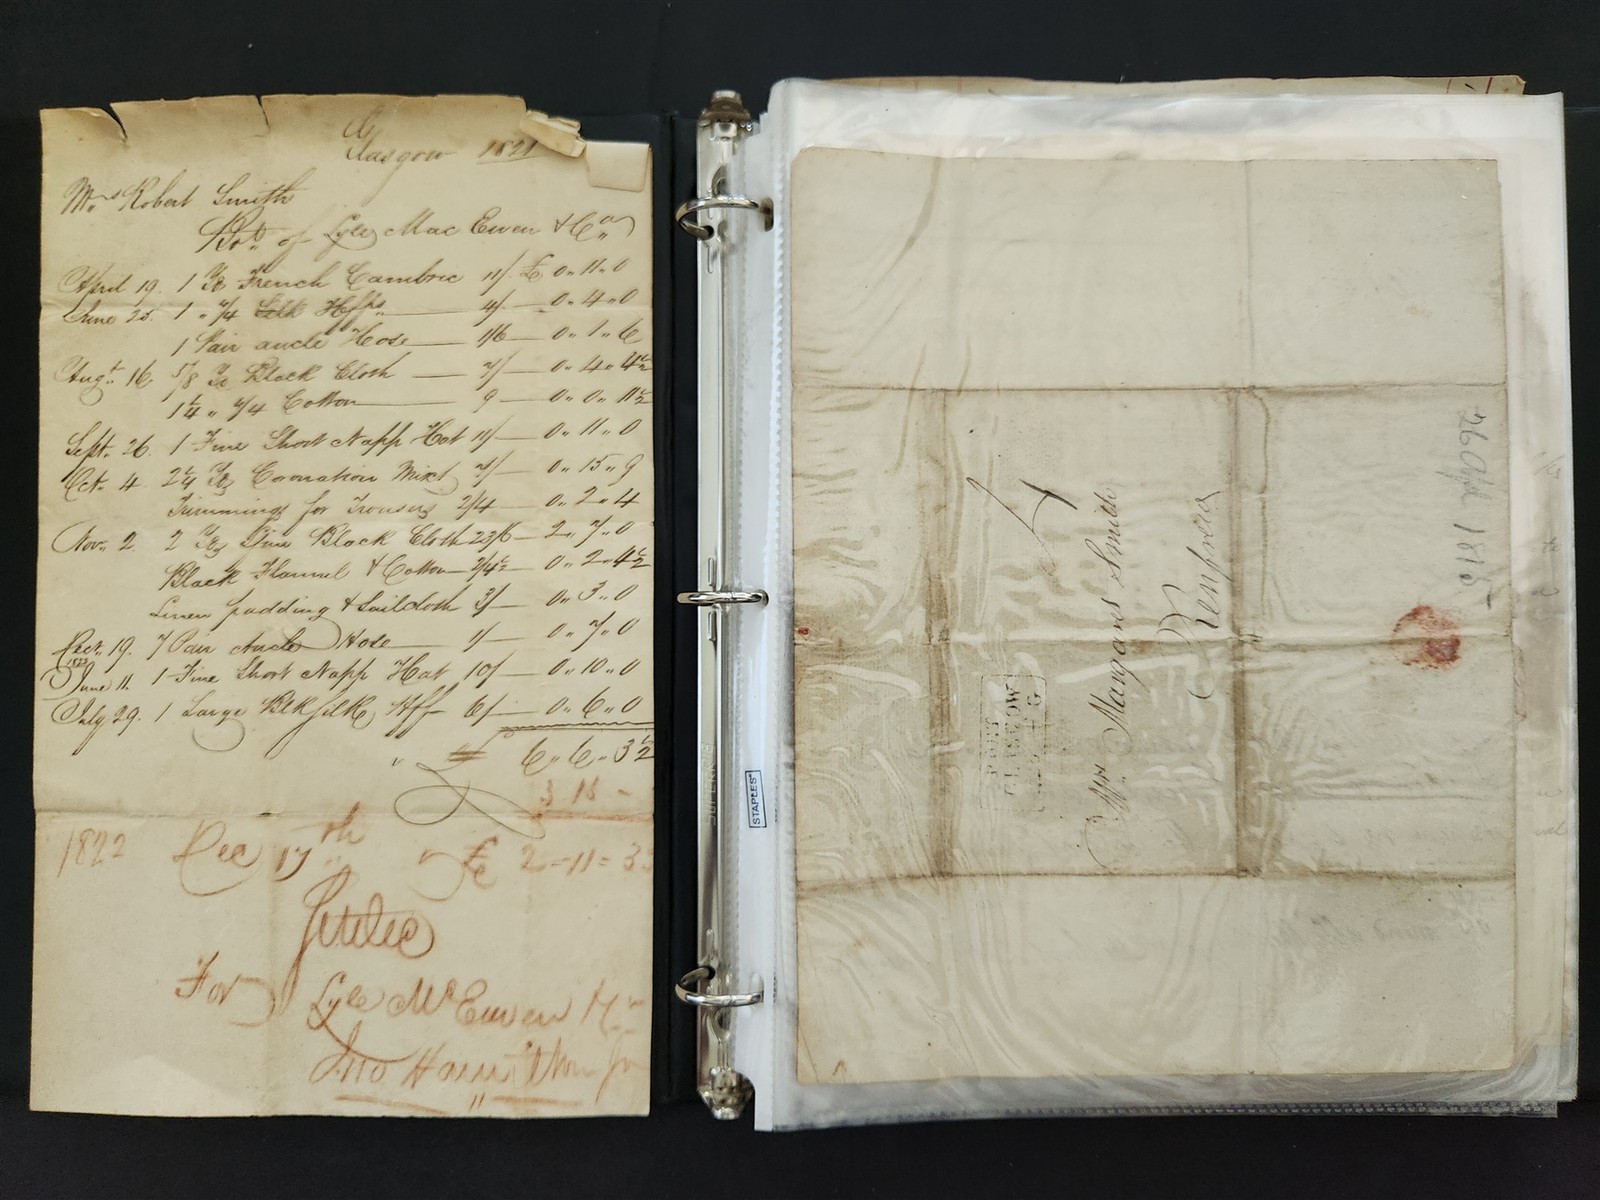 Glasgow 1821
Mrs Robert Smith
Bot. of Lyle Mac Ewen & Co
April 19. 1 Yd French Cambric 11/ £ 0 " 11 " 0
June 25. 1 " 7/4 Silk Hffs 4/ 0 " 4 " 0
1 Pair ancle Hose 1/6 0 " 1 " 6
Augt. 16. 5/8 Yd Black Cloth 7/ 0 " 4 " 4½
1¼ " 7/4 Cotton 9 0 " 0 " 11½
Sept. 26. 1 Fine Short Napp Hat 11/ 0 " 11 " 0
Oct. 4 2¼ Yds Coronation Mixt 7/ 0 " 15 " 9
Trimmings for Trousers 2/4 0 " 2 " 4
Nov. 2. 2 Yds Fine Black Cloth 23/6 2 " 7 " 0
Black Flannel & Cotton 2/4½ 0 " 2 " 4½
Linen padding & Sailcloth 3/ 0 " 3 " 0
Decr. 19. 7 Pair Ancle Hose 1/ 0 " 7 " 0
1822
June 11. 1 Fine Short Napp Hat 10/ 0 " 10 " 0
July 29. 1 Large Blk Silk Hff 6/ 0 " 6 " 0
" £ 6 " 6 " 3½
3 15 -
1822 Dec 17th " £ 2 - 11 = 3
Settled
For Lyle McEwen & Co
Jno Hamilton Jr
SUPREME
STAPLES
26 1815
PORT
GLASGOW
Mr Margaret Smith
Renfrew